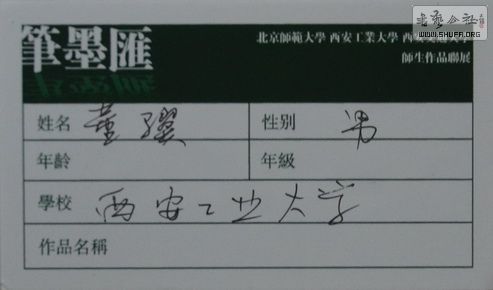 書藝公社
WWW.SHUFA.ORG
筆墨匯
北京師範大學 西安工業大學 西安
師生作品聯展
姓名 董
性別 男
年齡
年級
學校 西安工业大学
作品名稱